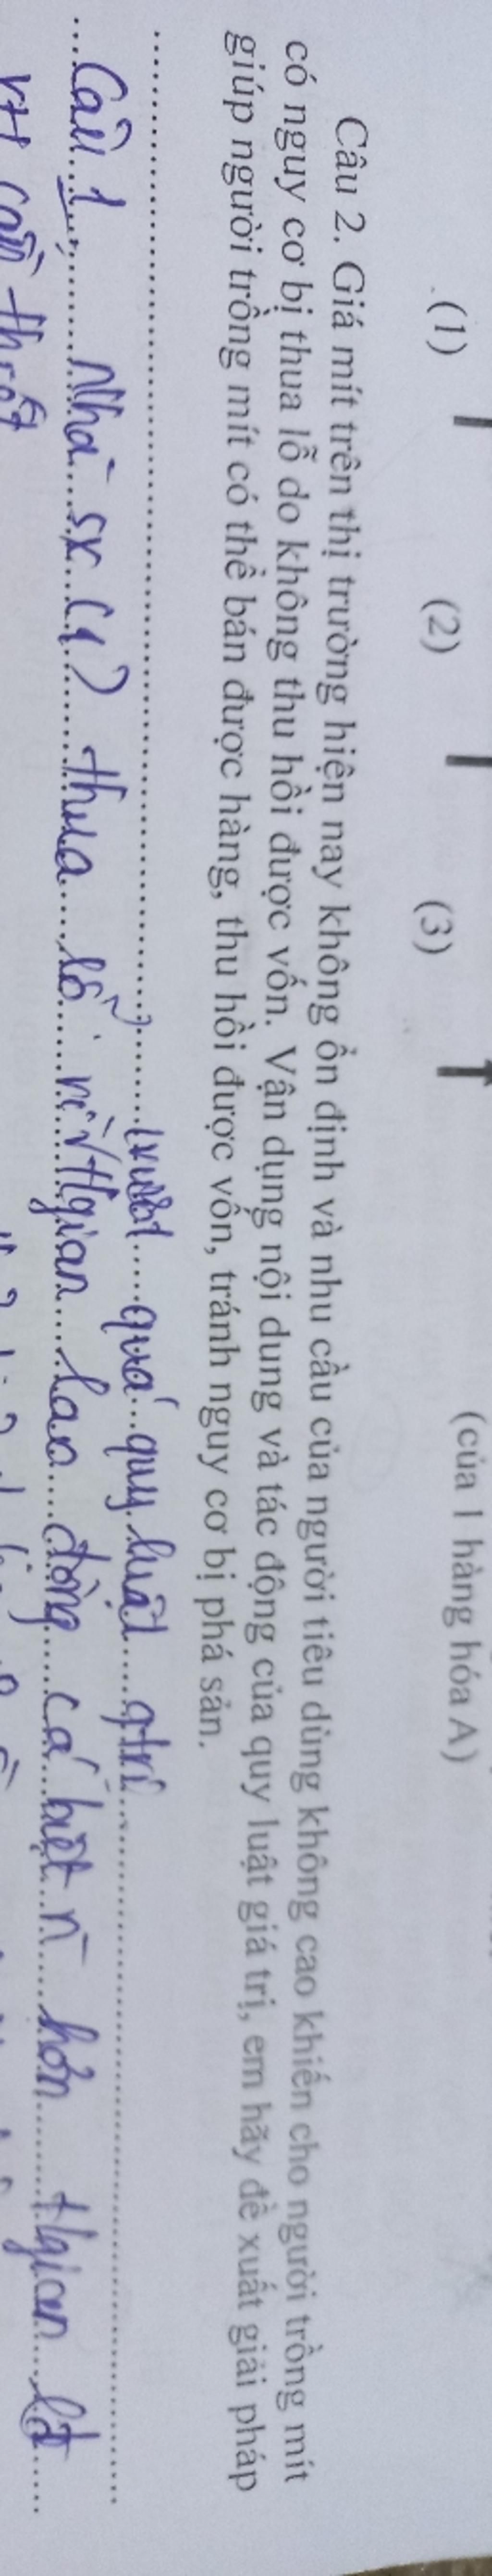 (1) (2) (3) (của 1 hàng hóa A)
Câu 2. Giá mít trên thị trường hiện nay không ổn định và nhu cầu của người tiêu dùng không cao khiến cho người trồng mít
có nguy cơ bị thua lỗ do không thu hồi được vốn. Vận dụng nội dung và tác động của quy luật giá trị, em hãy đề xuất giải pháp
giúp người trồng mít có thể bán được hàng, thu hồi được vốn, tránh nguy cơ bị phá sản.
quá quy luật gtrị
Câu 1 Nhà sx (1) thua lỗ vì tgian lao động cá biệt hơn tgian lđ
cần thiết